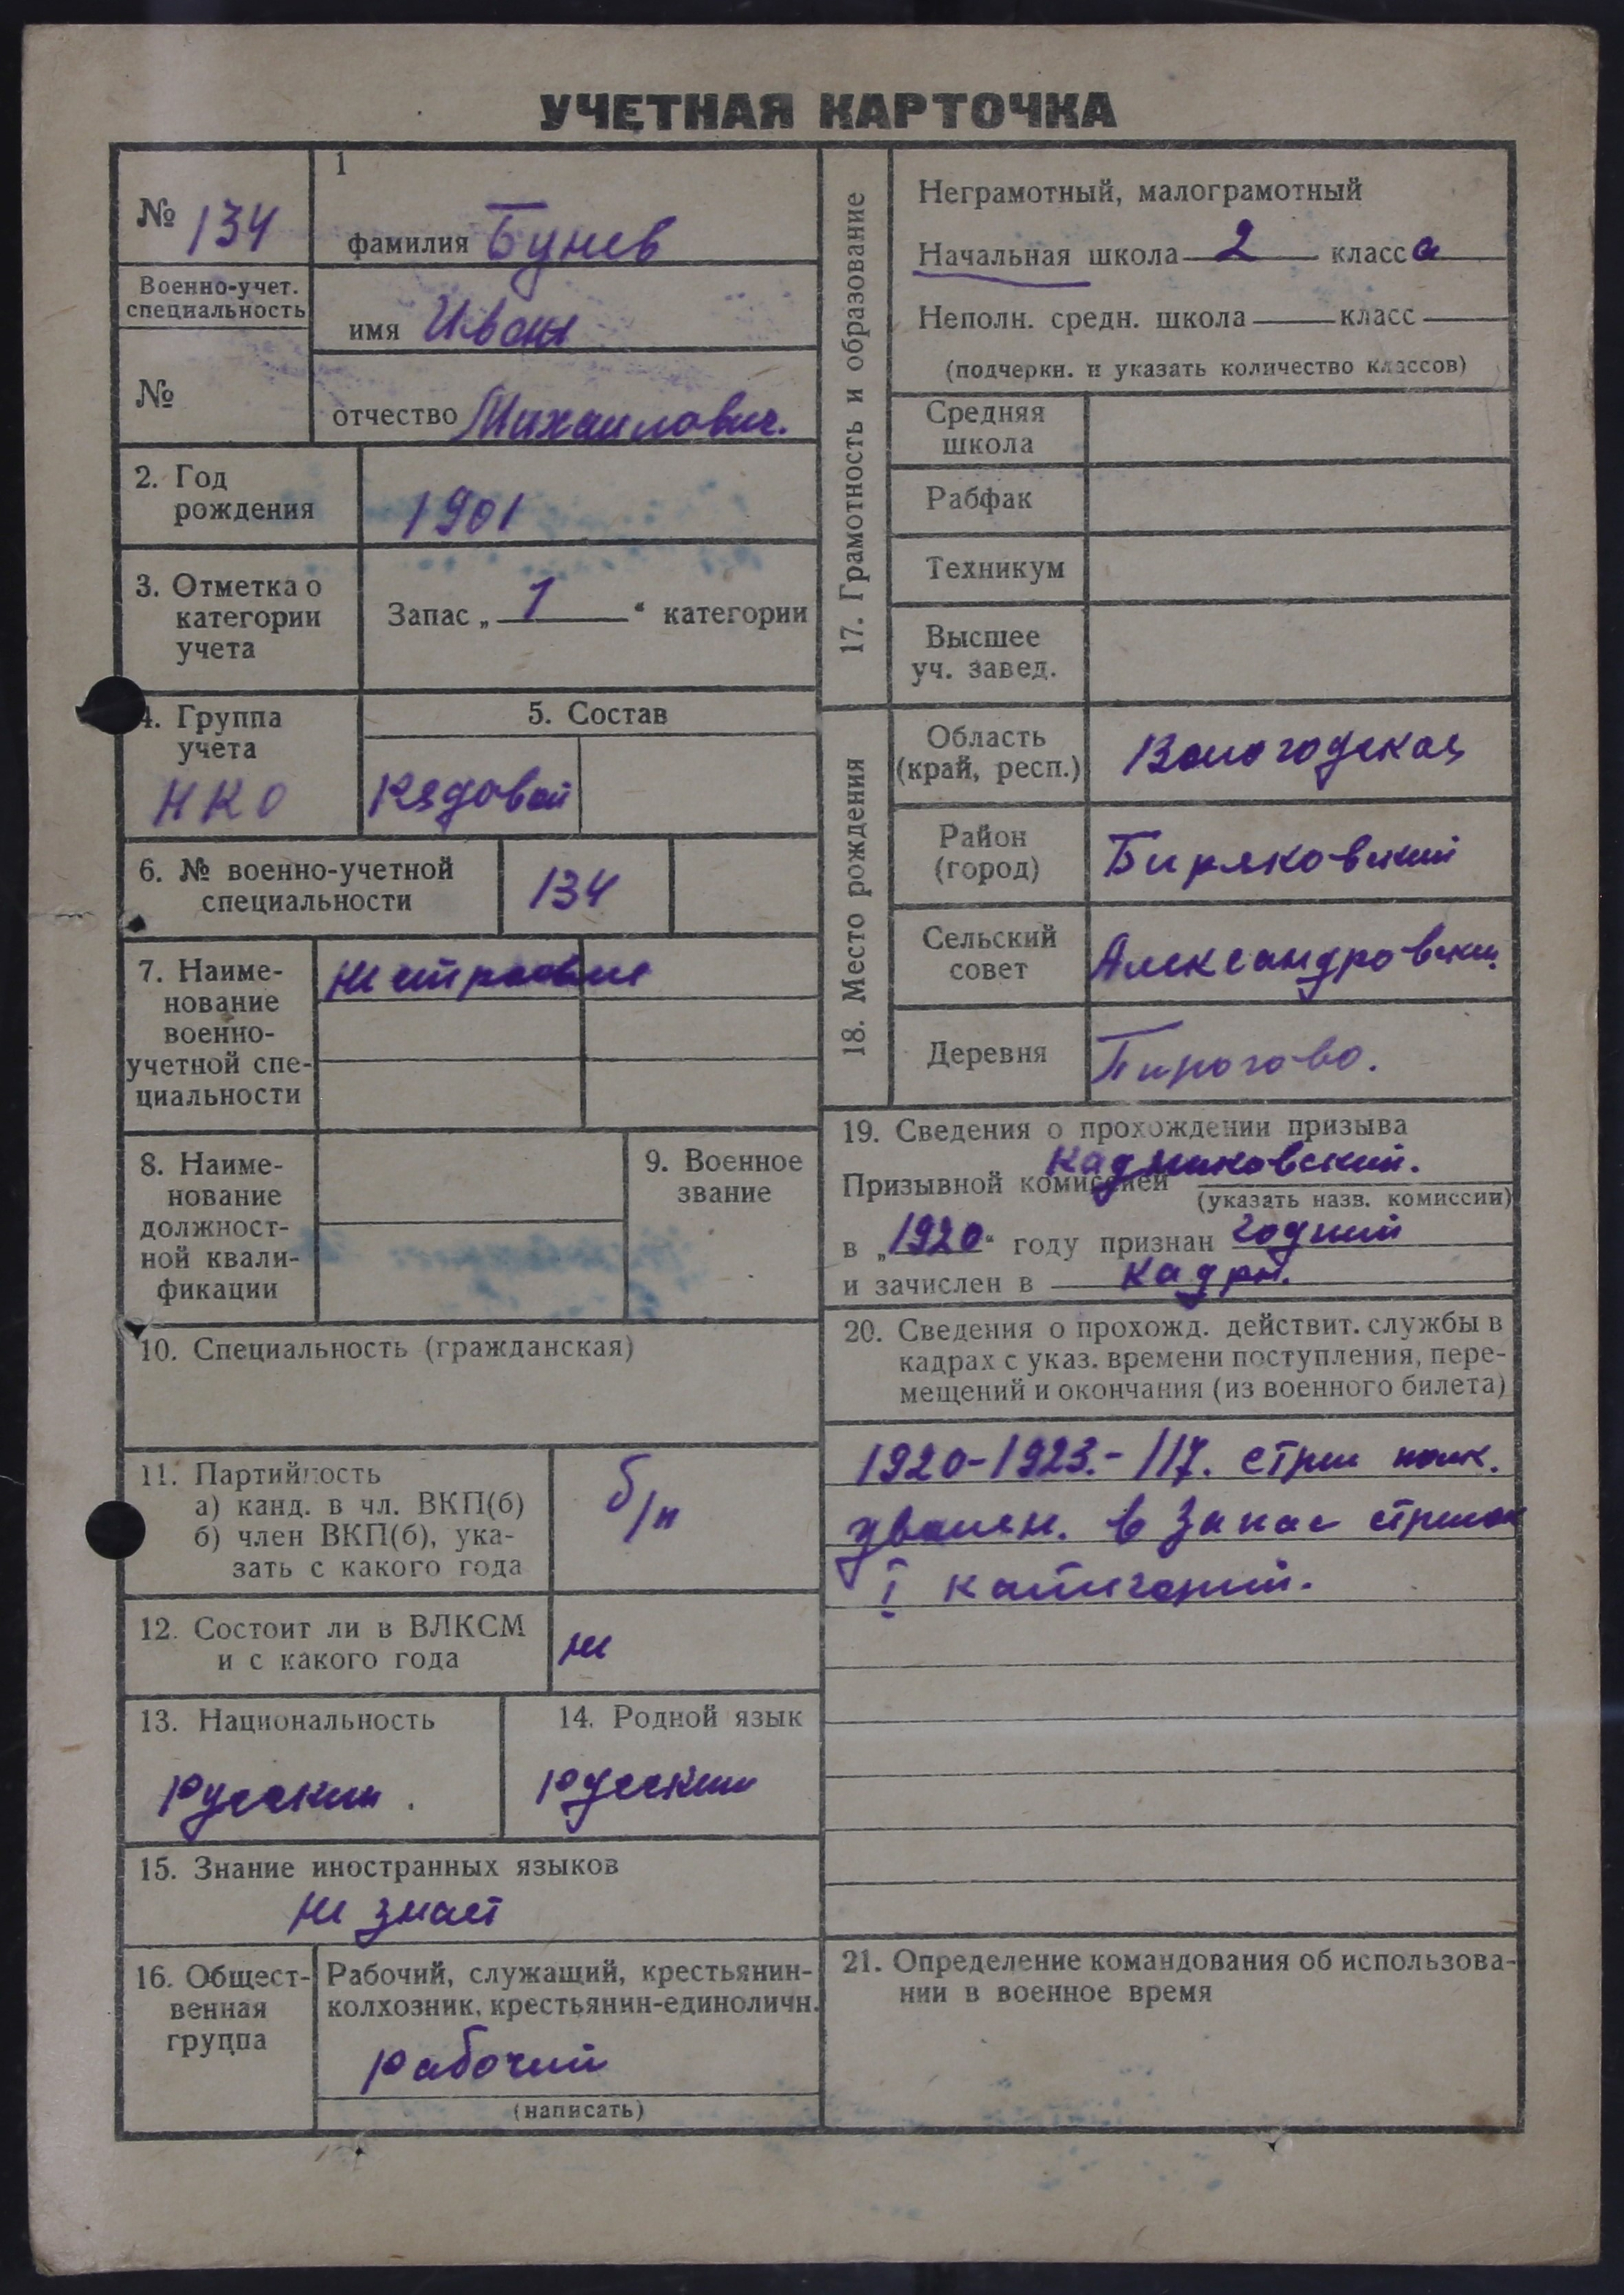 УЧЕТНАЯ КАРТОЧКА
№ 134
Военно-учет.
специальность
№
1
фамилия Бунев
имя Иван
отчество Михаилович.
2. Год
рождения
1901
3. Отметка о
категории
учета
Запас „ 1 “ категории
4. Группа
учета
НКО
5. Состав
Рядовой
6. № военно-учетной
специальности
134
7. Наиме-
нование
военно-
учетной спе-
циальности
8. Наиме-
нование
должност-
ной квали-
фикации
9. Военное
звание
10. Специальность (гражданская)
11. Партийность
а) канд. в чл. ВКП(б)
б) член ВКП(б), ука-
зать с какого года
б/п
12. Состоит ли в ВЛКСМ
и с какого года
не
13. Национальность
Русский.
14. Родной язык
Русский
15. Знание иностранных языков
не знает
16. Общест-
венная
группа
Рабочий, служащий, крестьянин-
колхозник, крестьянин-единоличн.
рабочий
(написать)
17. Грамотность и образование
Неграмотный, малограмотный
Начальная школа 2 класса
Неполн. средн. школа класс
(подчеркн. и указать количество классов)
Средняя
школа
Рабфак
Техникум
Высшее
уч. завед.
18. Место рождения
Область
(край, респ.)
Вологодская
Район
(город)
Биряковский
Сельский
совет
Александровский
Деревня
Пирогово.
19. Сведения о прохождении призыва
Призывной комиссией Кадниковский.
(указать назв. комиссии)
в „1920“ году признан годный
и зачислен в кадры.
20. Сведения о прохожд. действит. службы в
кадрах с указ. времени поступления, пере-
мещений и окончания (из военного билета)
1920-1923.- 117. стрел полк.
уволен. в запас стрелок
I категории.
21. Определение командования об использова-
нии в военное время